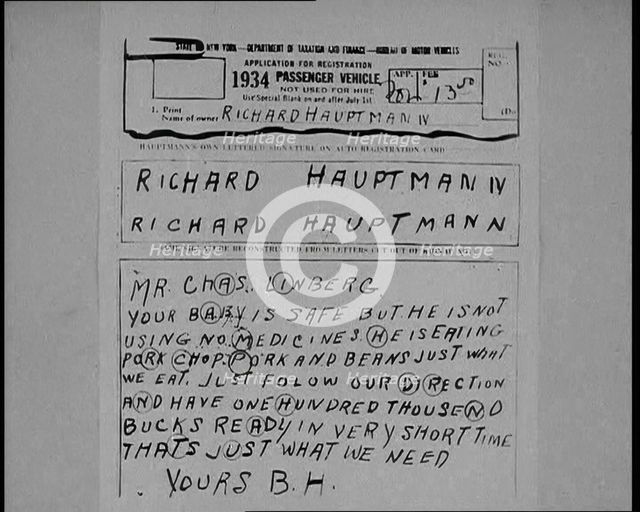 STATE OF NEW YORK—DEPARTMENT OF TAXATION AND FINANCE—BUREAU OF MOTOR VEHICLES
APPLICATION FOR REGISTRATION
1934 PASSENGER VEHICLE
NOT USED FOR HIRE
Use Special Blank on and after July 1st
APP. FEE
$ 13 50
REG.
NO.
1. Print
Name of owner RICHARD HAUPTMAN IV
(D
HAUPTMANN'S OWN LETTERED SIGNATURE ON AUTO REGISTRATION CARD
RICHARD HAUPTMAN IV
RICHARD HAUPTMANN
RECONSTRUCTED FROM LETTERS CUT OUT OF
MR. CHAS. LINBERG.
YOUR BABY IS SAFE BUT HE IS NOT
USING NO MEDICINES. HE IS EATING
PORK CHOP PORK AND BEANS JUST WHAT
WE EAT. JUST FOLOW OUR DIRECTION
AND HAVE ONE HUNDRED THOUSEND
BUCKS READY IN VERY SHORT TIME
THATS JUST WHAT WE NEED
YOURS B.H.
Heritage
Heritage
Heritage
Heritage
Heritage
Heritage
©